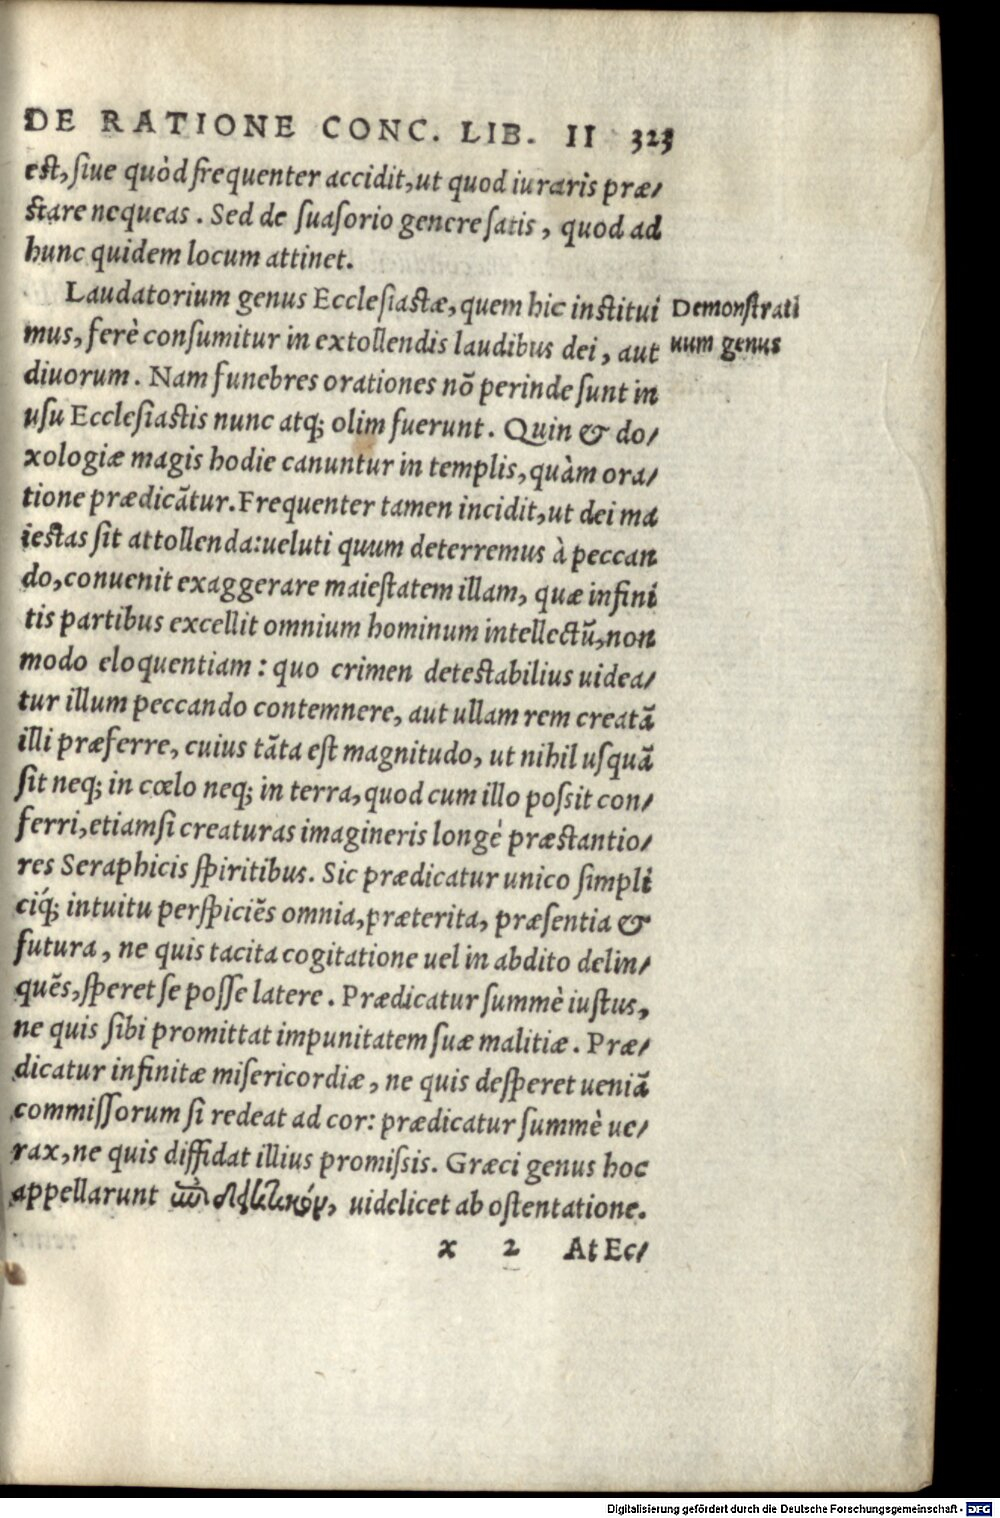 DE RATIONE CONC. LIB. II 323
est, siue quòd frequenter accidit, ut quod iuraris præ/
stare nequeas. Sed de suasorio genere satis, quod ad
hunc quidem locum attinet.
Laudatorium genus Ecclesiastæ, quem hic institui
Demonstrati
mus, ferè consumitur in extollendis laudibus dei, aut
uum genus
diuorum. Nam funebres orationes nõ perinde sunt in
usu Ecclesiastis nunc atq; olim fuerunt. Quin & do/
xologiæ magis hodie canuntur in templis, quàm ora/
tione prædicãtur. Frequenter tamen incidit, ut dei ma
iestas sit attollenda: ueluti quum deterremus à peccan
do, conuenit exaggerare maiestatem illam, quæ infini
tis partibus excellit omnium hominum intellectũ, non
modo eloquentiam: quo crimen detestabilius uidea/
tur illum peccando contemnere, aut ullam rem creatã
illi præferre, cuius tãta est magnitudo, ut nihil usquã
sit neq; in cœlo neq; in terra, quod cum illo possit con/
ferri, etiamsi creaturas imagineris longè præstantio/
res Seraphicis spiritibus. Sic prædicatur unico simpli
ciq́; intuitu perspiciẽs omnia, præterita, præsentia &
futura, ne quis tacita cogitatione uel in abdito delin/
quẽs, speret se posse latere. Prædicatur summè iustus,
ne quis sibi promittat impunitatem suæ malitiæ. Præ/
dicatur infinitæ misericordiæ, ne quis desperet ueniã
commissorum si redeat ad cor: prædicatur summè ue/
rax, ne quis diffidat illius promissis. Græci genus hoc
appellarunt uidelicet ab ostentatione.
x 2 At Ec/
Digitalisierung gefördert durch die Deutsche Forschungsgemeinschaft - DFG